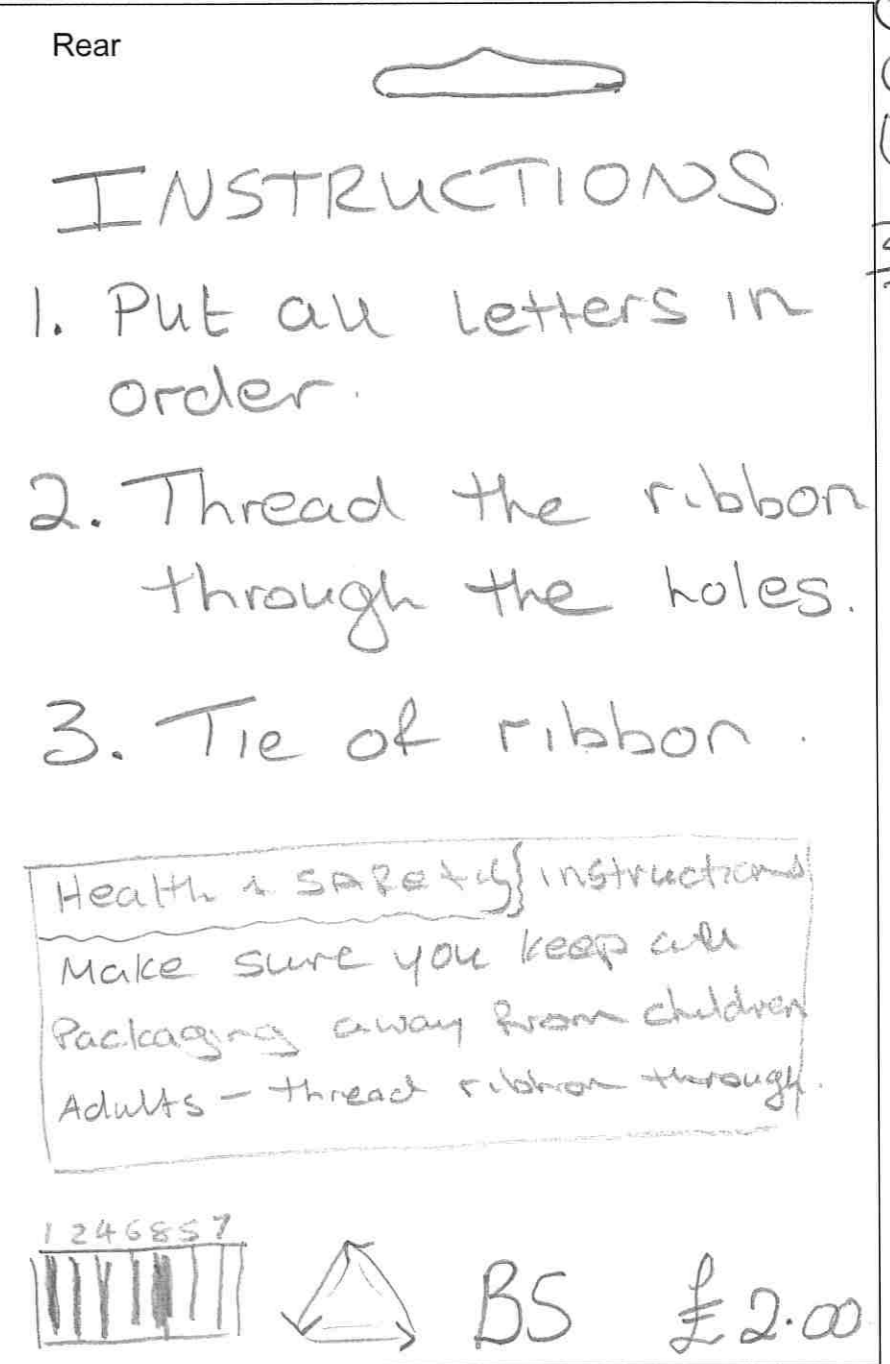 Rear
INSTRUCTIONS
1. Put all letters in
order.
2. Thread the ribbon
through the holes.
3. Tie of ribbon.
Health & SAFEty instructions
Make sure you keep all
Packaging away from children
Adults - thread ribbon through.
1246857
BS £2.00